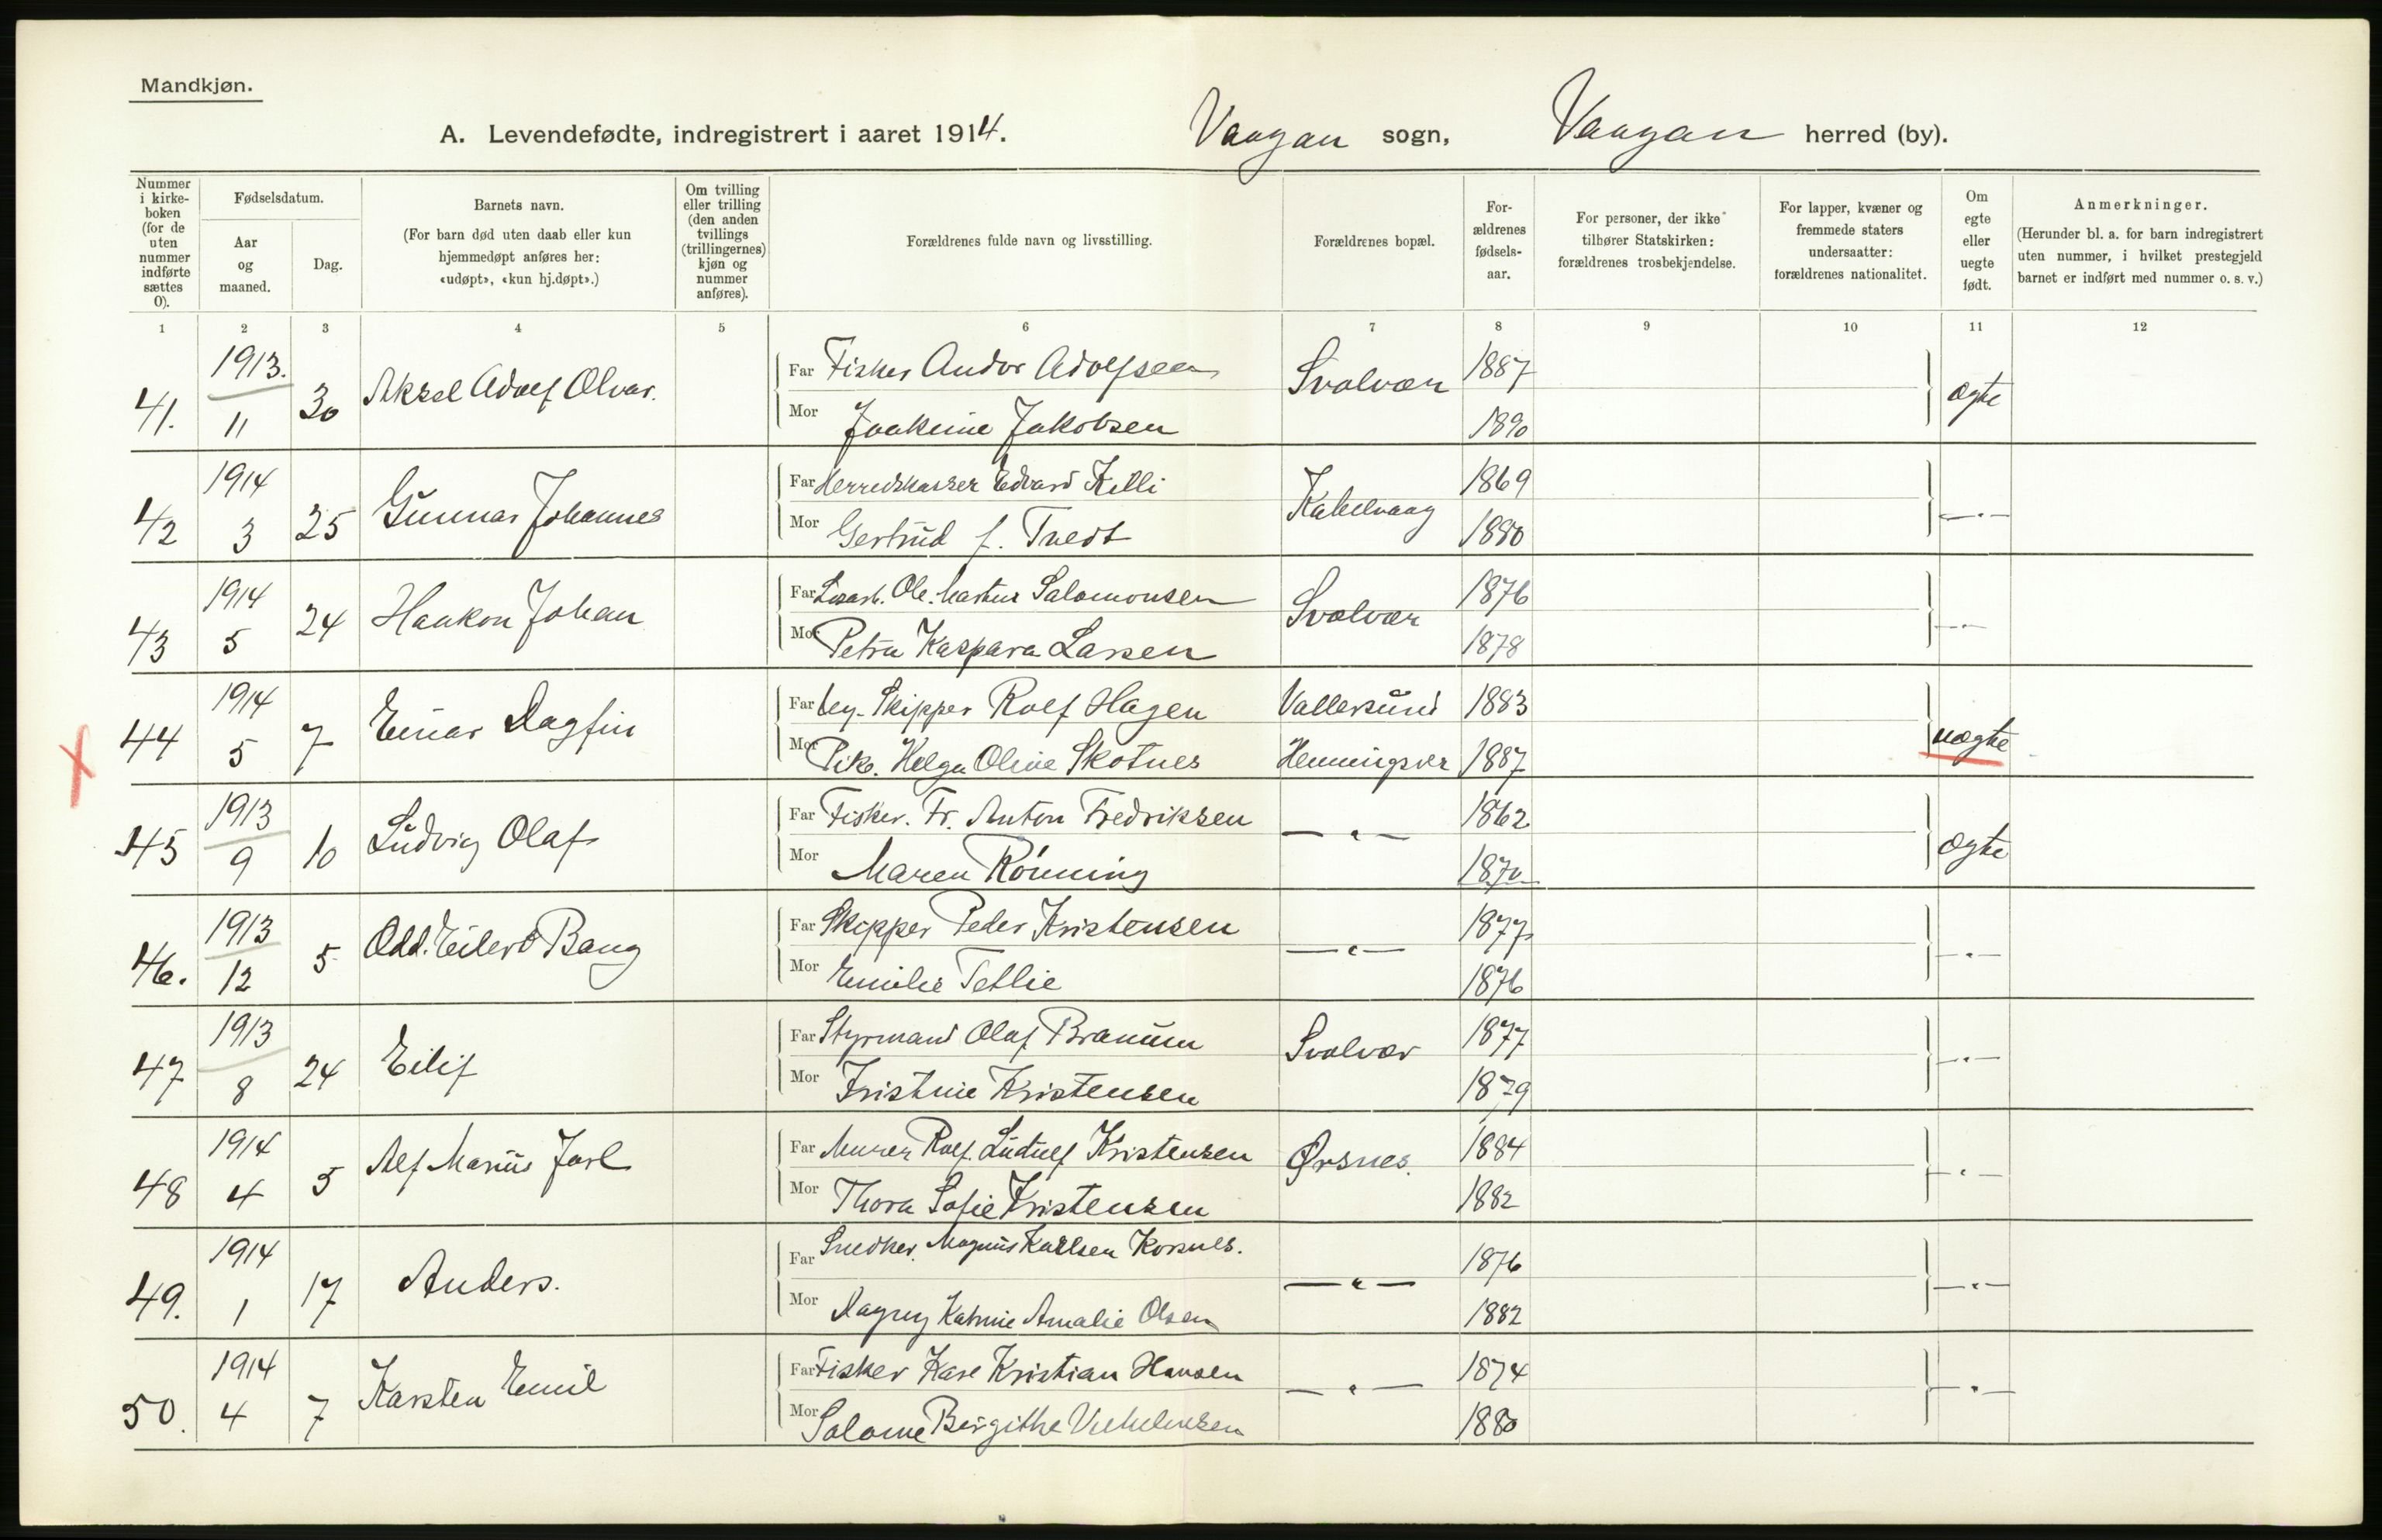 Mandkjøn.
A. Levendefødte, indregistrert i aaret 1914. Vaagan sogn, Vaagan herred (by).
Nummer i kirke-boken (for de uten nummer indførte sættes 0).
Fødselsdatum.
Aar og maaned.
Dag.
Barnets navn.
(For barn død uten daab eller kun hjemmedøpt anføres her: «udøpt», «kun hj.døpt».)
Om tvilling eller trilling (den anden tvillings (trillingernes) kjøn og nummer anføres).
Forældrenes fulde navn og livsstilling.
Forældrenes bopæl.
For-ældrenes fødsels-aar.
For personer, der ikke tilhører Statskirken: forældrenes trosbekjendelse.
For lapper, kvæner og fremmede staters undersaatter: forældrenes nationalitet.
Om egte eller uegte født.
Anmerkninger.
(Herunder bl. a. for barn indregistrert uten nummer, i hvilket prestegjeld barnet er indført med nummer o. s. v.)
1 2 3 4 5 6 7 8 9 10 11 12
41. 1913. 11 30 Aksel Adolf Olvar. Far Fisker Andor Adolfsen Svolvær 1887 ægte
Mor Joakime Jakobsen 1890
42 1914 3 25 Gunnar Johannes Far Herredskasser Edvard Killi Kabelvaag 1869 — " —
Mor Gertrud f. Tvedt 1880
43 1914 5 24 Haakon Johan Far Ole Martin Salomonsen Svolvær 1876 — " —
Mor Petra Kaspara Larsen 1878
44 1914 5 7 Einar Dagfin Far Skipper Rolf Hagen Vallersund 1883 uægte
Mor Pike. Helga Oline Skotnes Henningsvær 1887
45 1913 9 10 Ludvig Olaf Far Fisker. Fr. Anton Fredriksen — " — 1862 ægte
Mor Maren Rönning 1870
46. 1913 12 5 Odd. Eilert Bang Far Skipper Peder Kristensen — " — 1877 — " —
Mor Emilie Tetlie 1876
47 1913 8 24 Eilif Far Styrmand Olaf Svolvær 1877 — " —
Mor Kristine Kristensen 1879
48 1914 4 5 Alf Marius Jarl Far Murer Rolf Ludulf Kristensen Ørsnes. 1884 — " —
Mor Thora Sofie Kristensen 1882
49. 1914 1 17 Anders. Far Snedker. Magnus Karlsen Korsnes. — " — 1876 — " —
Mor Dagny Katrine Amalie Olsen 1882
50. 1914 4 7 Karsten Emil Far Fisker Kare Kristian Hansen — " — 1874 — " —
Mor Salome Bergithe Vilhelmsen 1880